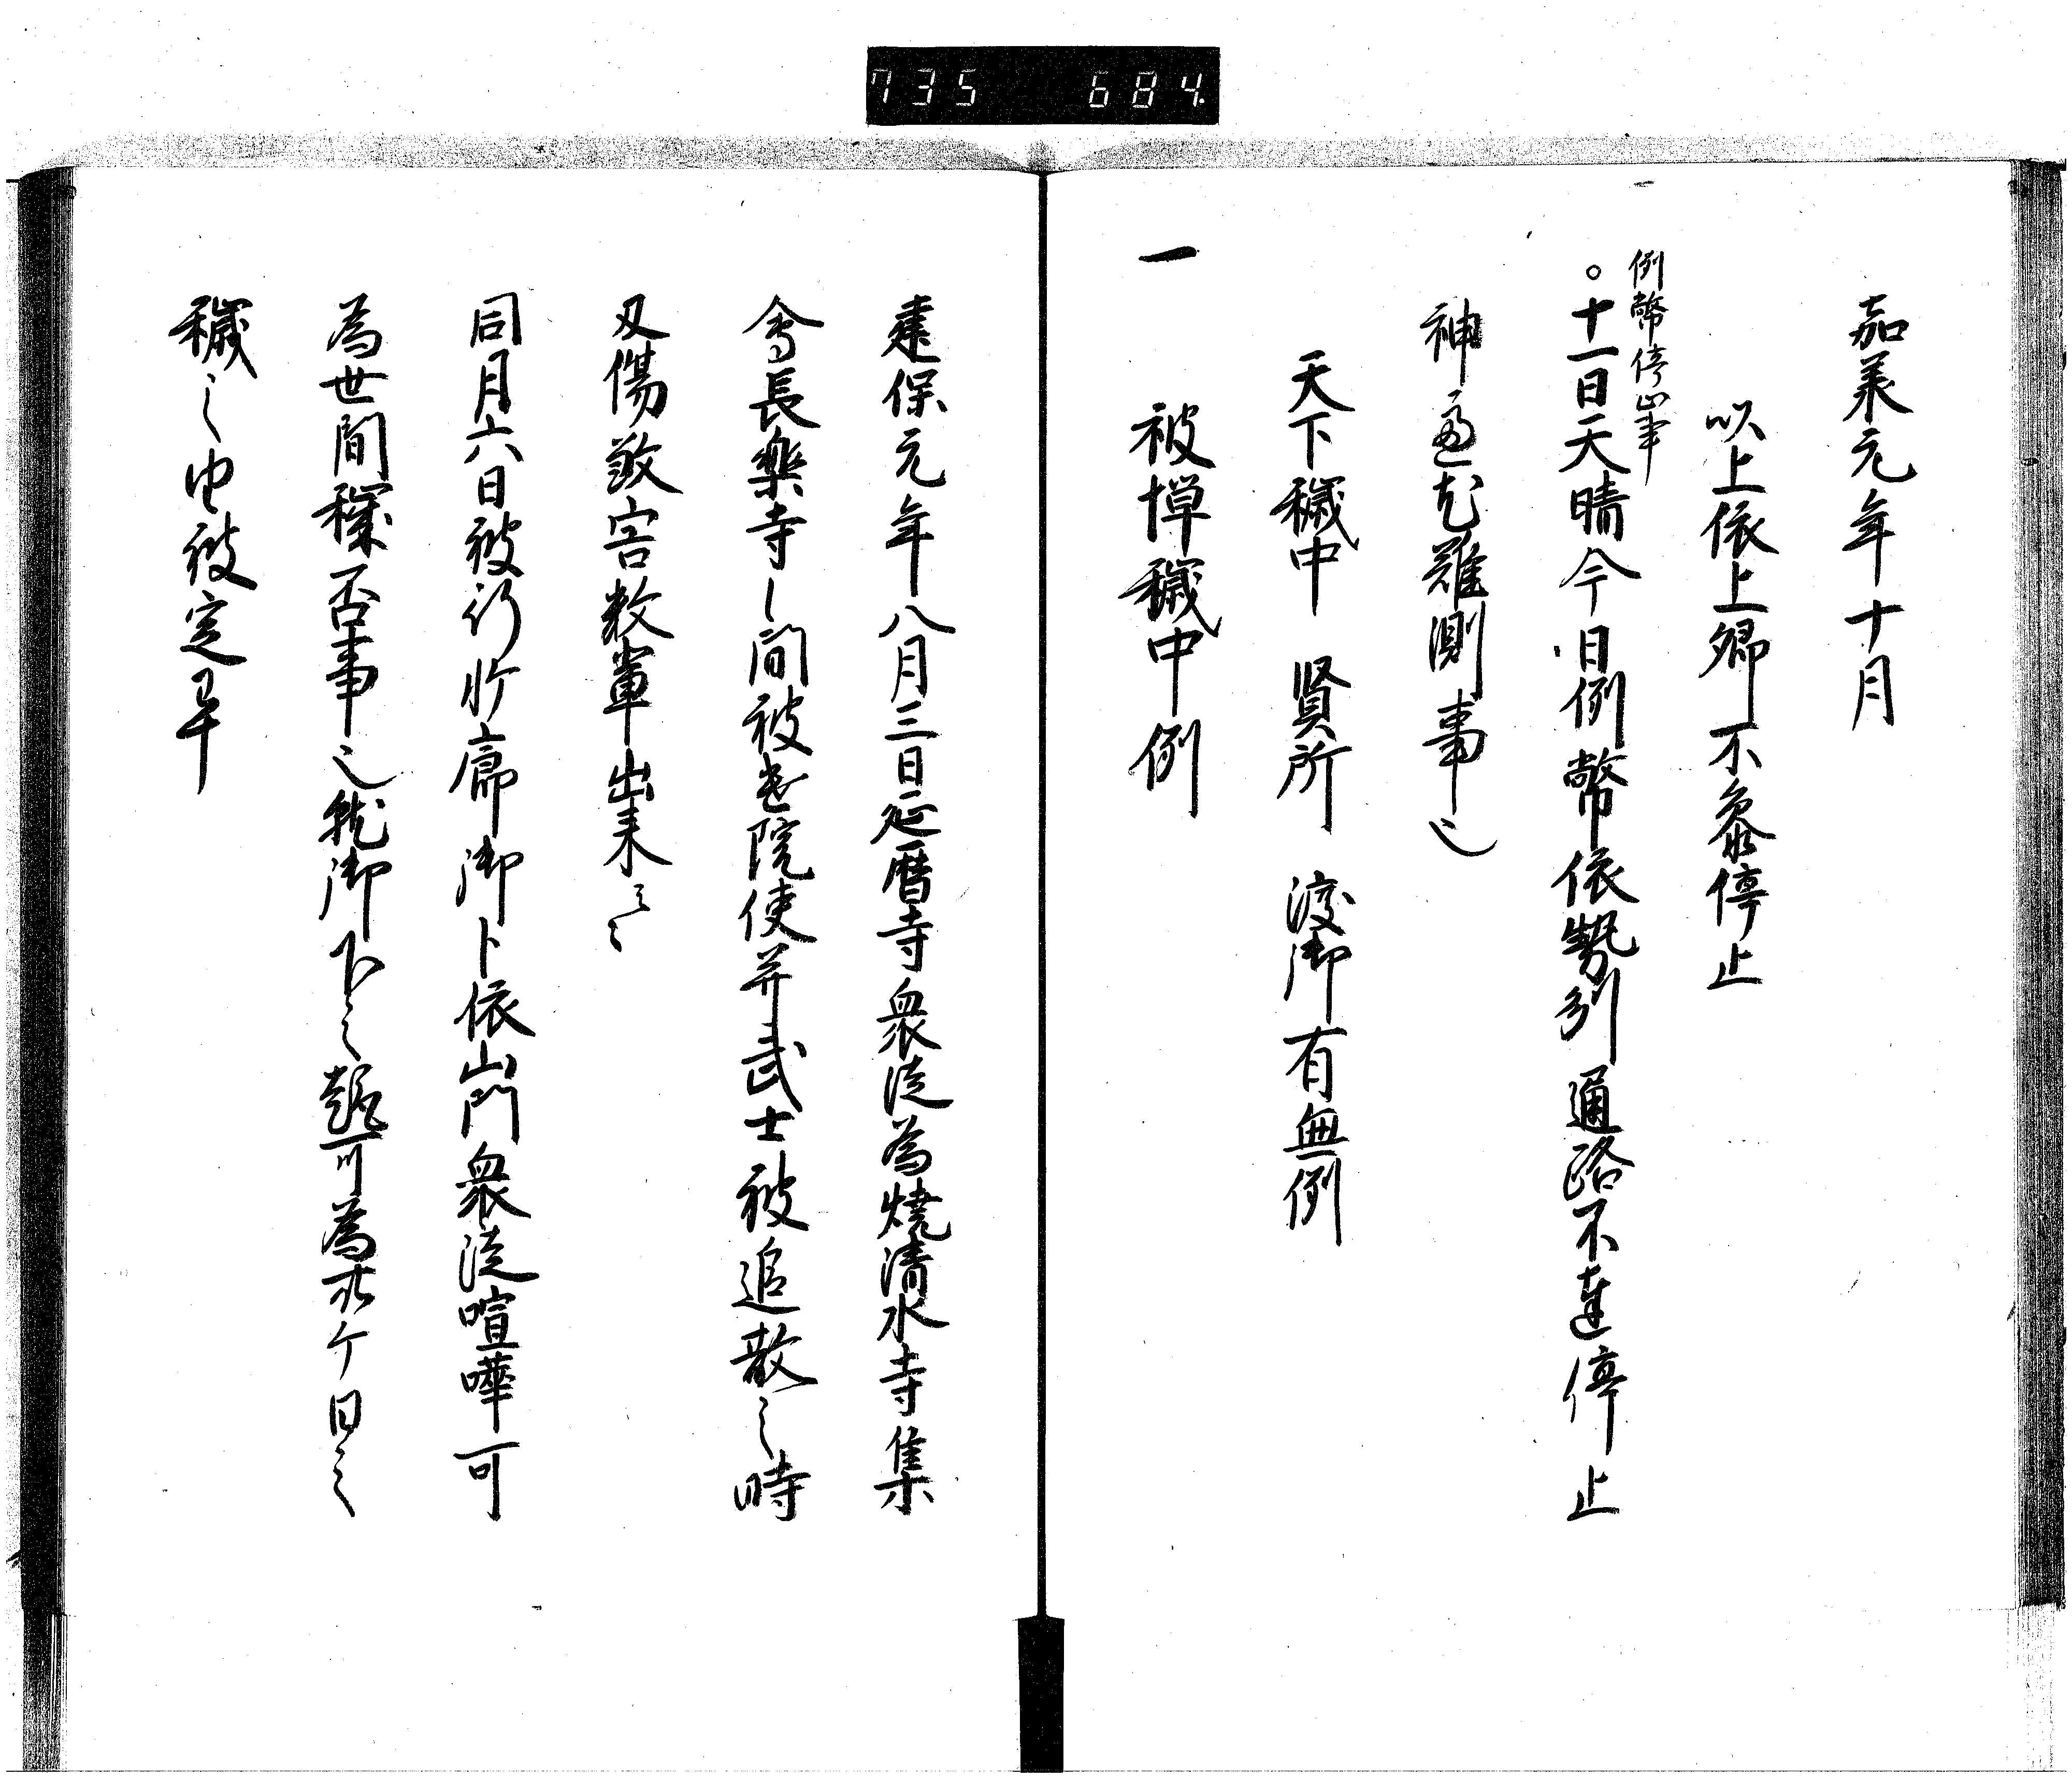 735 684
嘉承元年十月
以上依上卿不参停止
例幣停止事
。十一日天晴今日例幣依勢州通路不達停止
神慮尤難測事也
天下穢中 賢所 渡御有無例
一 被憚穢中例
建保元年八月三日延暦寺衆徒為焼清水寺集
会長楽寺之間被遣院使并武士被追散之時
刃傷殺害数輩出来云々
同月六日被行於廊御卜依山門衆徒喧嘩可
為世間穢否事也就御卜之趣可為卅ケ日之
穢之由被定畢